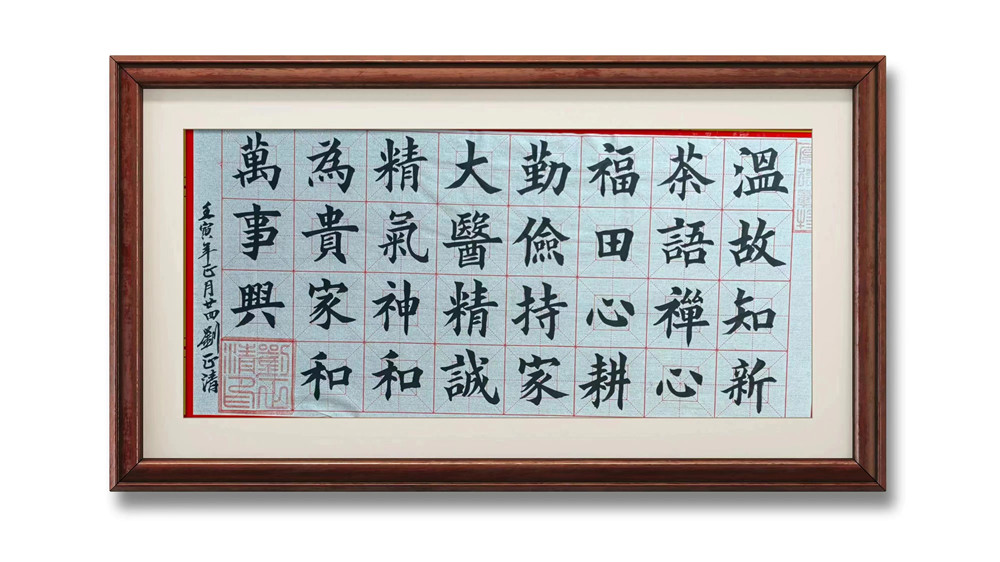 溫故知新
茶語禪心
福田心耕
勤儉持家
大醫精誠
精氣神和
為貴家和
萬事興
壬寅年正月廿四劉正清
劉正清印